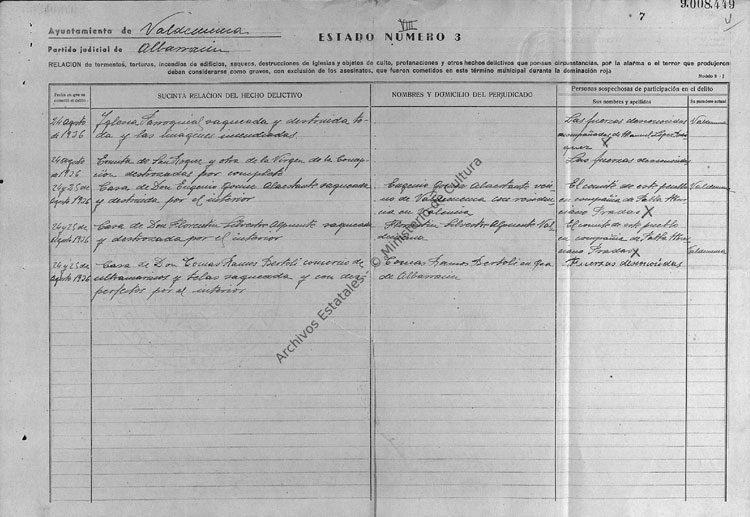 9.008.449
7
VIII
Ayuntamiento de Valdecuenca
ESTADO NUMERO 3
Partido judicial de Albarracín
RELACION de tormentos, torturas, incendios de edificios, saqueos, destrucciones de Iglesias y objetos de culto, profanaciones y otros hechos delictivos que por sus circunstancias, por la alarma o el terror que produjeron
deban considerarse como graves, con exclusión de los asesinatos, que fueron cometidos en este término municipal durante la dominación roja
Fecha en que se cometió el delito
SUCINTA RELACION DEL HECHO DELICTIVO
NOMBRES Y DOMICILIO DEL PERJUDICADO
Personas sospechosas de participación en el delito
Sus nombres y apellidos
Su paradero actual
24 agosto de 1936
Iglesia Parroquial saqueada y destruida to-
da y las Imagenes incendiadas
Las fuerzas desconocidas
acompañadas de Manuel Lopez
X
Valdecuenca
24 agosto de 1936
Ermita de San Roque y otra de la Virgen de la Concep-
cion destrozadas por completo
Las fuerzas desconocidas
24 y 25 de Agosto 1936
Casa de Don Eugenio Gomez Alacstante saqueada
y destruida por el interior
Eugenio Gomez Alacstante veci-
no de Valdecuenca con residen-
cia en Valencia
El comite de este pueblo
en compañia de Pablo
Pradas X
Valdecuenca
24 y 25 de Agosto 1936
Casa de Don Florentin Silvestre Alpuente saqueada
y destrozada por el interior
Florentin Silvestre Alpuente Val-
decuenca
El comite de este pueblo
en compañia de Pablo
Pradas X
Valdecuenca
24 y 25 de Agosto 1936
Casa de Don Tomas Ramos Bertoli comercio de
ultramarinos y telas saqueada y con des-
perfectos por el interior
Tomas Ramos Bertoli
de Albarracin
Fuerzas desconocidas
Archivos Estatales © Ministerio de Cultura